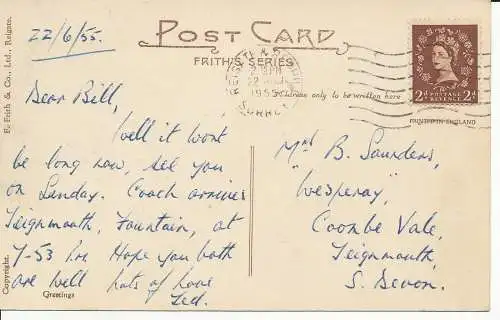 22/6/55.
POST CARD
FRITH'S SERIES
Address only to be written here
2d POSTAGE REVENUE 2d
PRINTED IN ENGLAND
F. Frith & Co., Ltd., Reigate.
Dear Bill,
Well it wont
be long now, see you
on Sunday. Coach arrives
Teignmouth, Fountain, at
7-53 hrs Hope you both
are well Lots of love
Ted.
Copyright.
Greetings
B. Saunders,
Coombe Vale,
Teignmouth,
S. Devon.